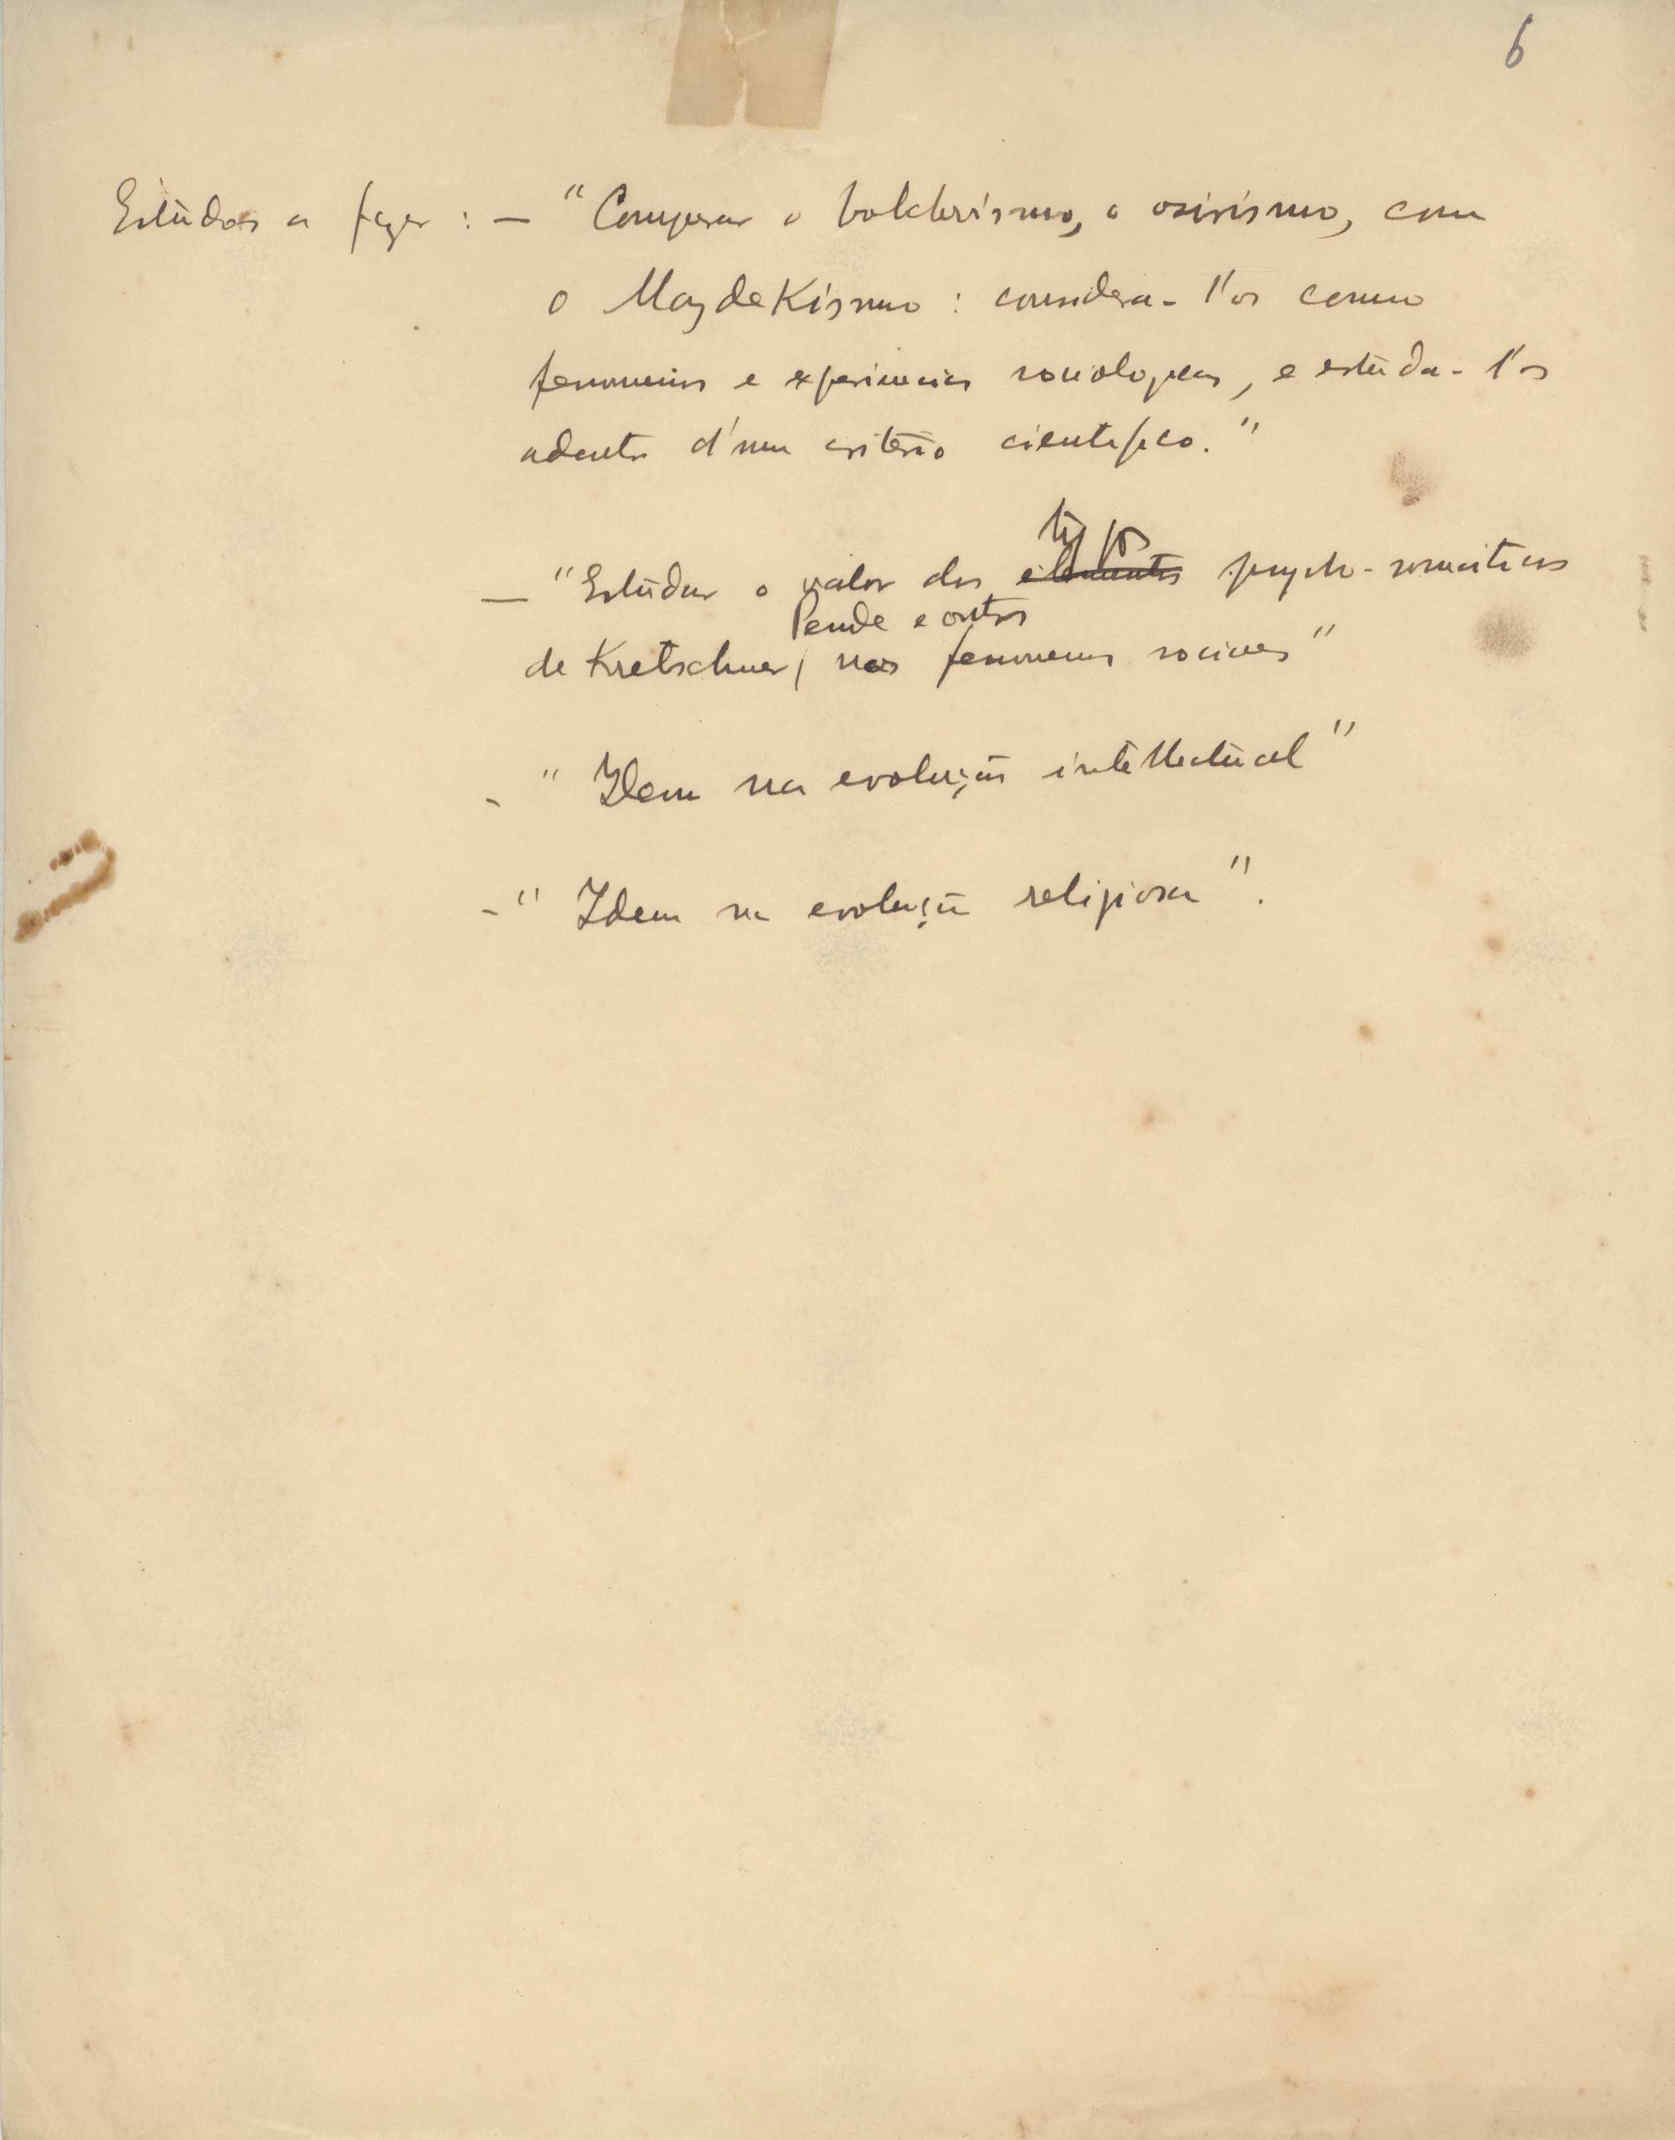 6
Estudos a fazer : — "Comparar o bolchevismo, o osirismo, com
o Mazdekismo : considera-l'os como
fenomenos e experiencias sociologicas, e estuda-l'os
adentro d'um critério cientifico."
— "Estudar o valor dos elementos typos psycho-somaticos
de Kretschmer, Pende e outros nos fenomenos sociaes"
- "Idem na evolução intellectual"
- "Idem na evolução religiosa".